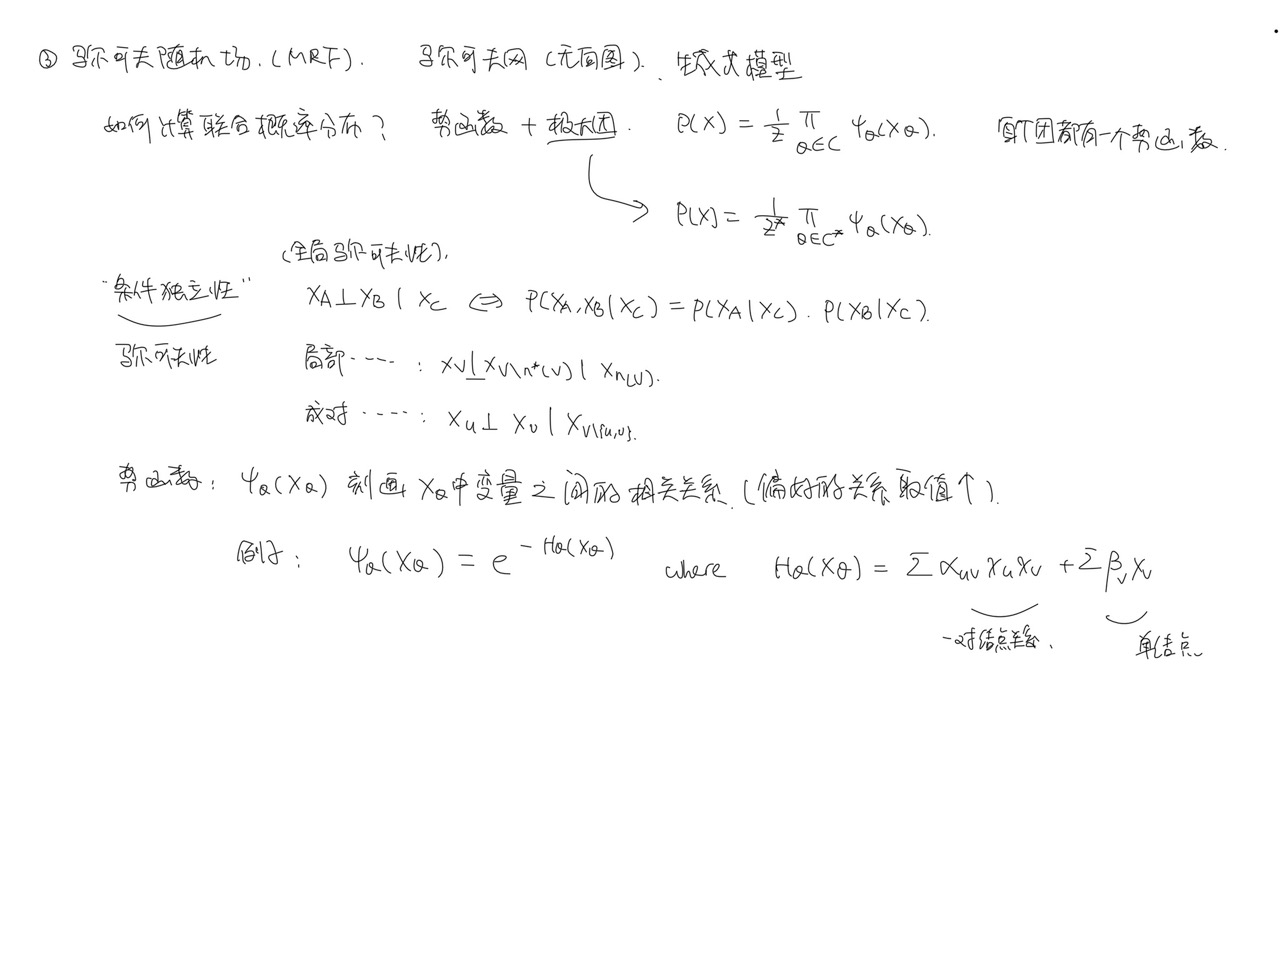 ③ 马尔可夫随机场.(MRF). 马尔可夫网(无向图). 生成式模型
如何计算联合概率分布? 势函数 + 极大团. P(X) = 1/Z ∏_{Q∈C} ψ_Q(X_Q). 每个团都有一个势函数.
P(X) = 1/Z* ∏_{Q∈C*} ψ_Q(X_Q).
(全局马尔可夫性).
"条件独立性" X_A ⊥ X_B | X_C ⇔ P(X_A, X_B | X_C) = P(X_A | X_C) . P(X_B | X_C).
马尔可夫性 局部 ····· : X_V ⊥ X_{V\n*(V)} | X_{n(V)}.
成对 ····· : X_u ⊥ X_v | X_{V\{u,v}}.
势函数: ψ_Q(X_Q) 刻画 X_Q中变量之间的相关关系.(偏好的关系取值↑).
例子: ψ_Q(X_Q) = e^{-H_Q(X_Q)} where H_Q(X_Q) = Σ α_{uv} X_u X_v + Σ β_v X_v
一对结点关系. 单结点